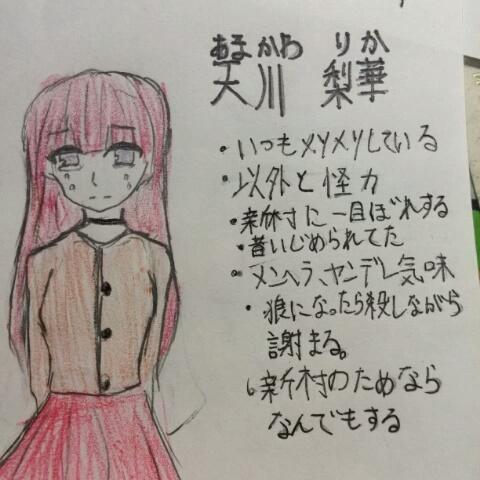 あまかわ りか
天川 梨華
・いつもメソメソしている
・以外と怪力
・新村に一目ぼれする
・昔いじめられてた
・メンヘラ、ヤンデレ気味
・狼になったら殺しながら
謝まる。
・新村のためなら
なんでもする